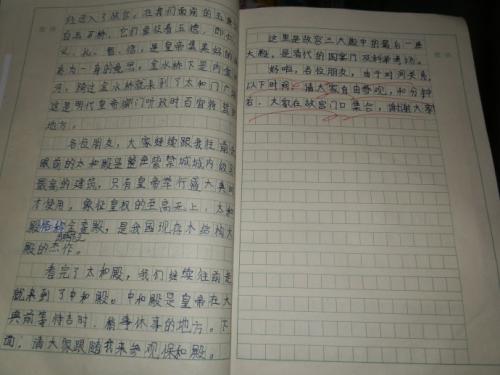 往进入了故宫，在我们面前的五座
白玉石桥，它们象征着五德，即仁
义、礼、智、信，是皇帝集美好的
为一身的
河，跨过金水桥就来到了太和门广
这是明代皇帝御门听政时百官
地方。
各位朋友，大家继续跟我往前
眼前的太和殿是整座紫禁城城内
的建筑，只有皇帝举行盛大典
才使用。象征皇权的至高无上，太和
殿俗称金銮殿，是我国现存木结构大
殿的杰作。
看完了太和殿，我们继续往前走
就来到了中和殿。中和殿是皇帝在大
典前等待吉时、休息的地方。下
面，请大家跟随我来参观保和殿。
这里是故宫三大殿中的最后一座
大殿，是清代的国宴厅及科举考场。
好啦，各位朋友，由于时间关系，
以下时间，请大家自由参观，分钟
后，大家在故宫门口集合，谢谢大家